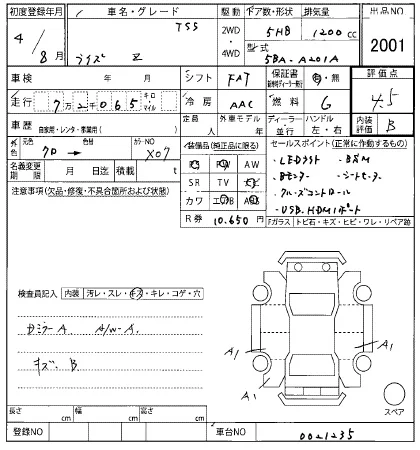 初度登録年月 車名・グレード 駆動 ドア数・形状 排気量 出品NO
4/8月 ライズ Z TSS 2WD・4WD 5HB 1200cc 2001
型式 5BA-A201A
車検 年 月 シフト FAT 保証書 有・無 評価点
走行 7万2千065 キロ マイル 冷房 AAC 燃料 G 4.5
車歴 自家用・レンタ・事業用( ) 定員 人 外車モデル 年 ディーラー 並行 ハンドル 左・右 内装評価 B
外色 元色 クロ → 色替 カラーNO X07 装備品(純正品に限る) セールスポイント(正常に作動するもの)
名義変更期限 月 日迄 積載 t PS PW AW ・LEDライト ・BSM
注意事項(欠品・修復・不具合箇所および状態) SR TV ナビ ・Bモニター ・シートヒーター
カワ エアB ABS ・クルーズコントロール
R券 10,650円 ・USB.HDMIポート
Fガラス トビ石・キズ・ヒビ・ワレ・リペア跡
検査員記入 内装 汚レ・スレ・キズ・キレ・コゲ・穴
DミラーA. A/W-A.
キズ. B
A1
A1
A1
スペア
長さ cm 幅 cm 高さ cm
登録NO 車台NO 0021235